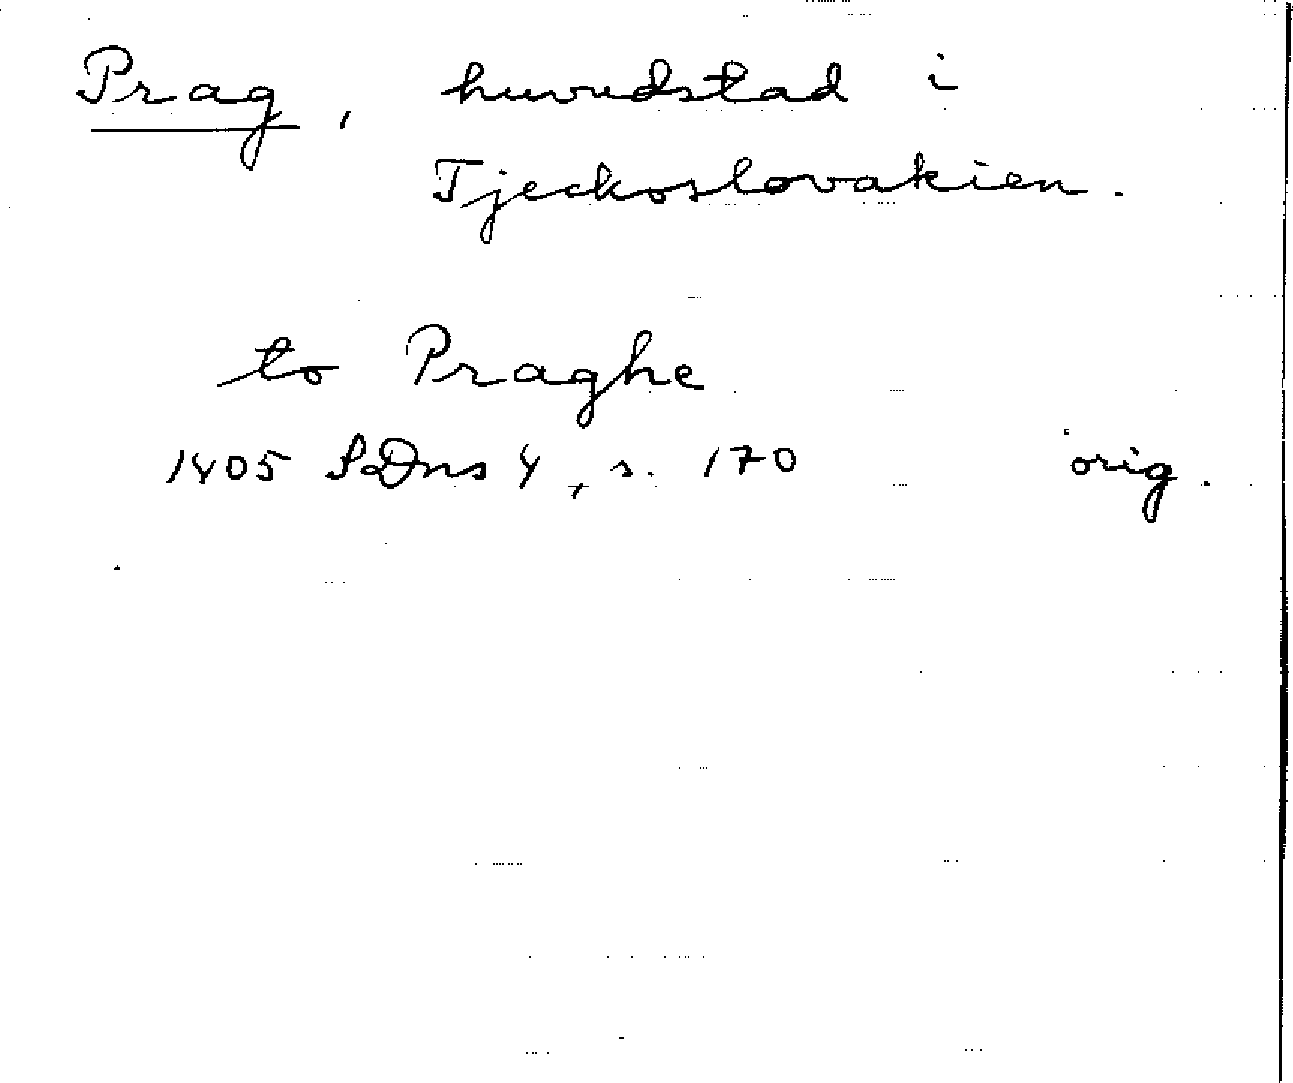 Prag, huvudstad i
Tjeckoslovakien.
to Praghe
1405 SDns 4, s. 170 orig.